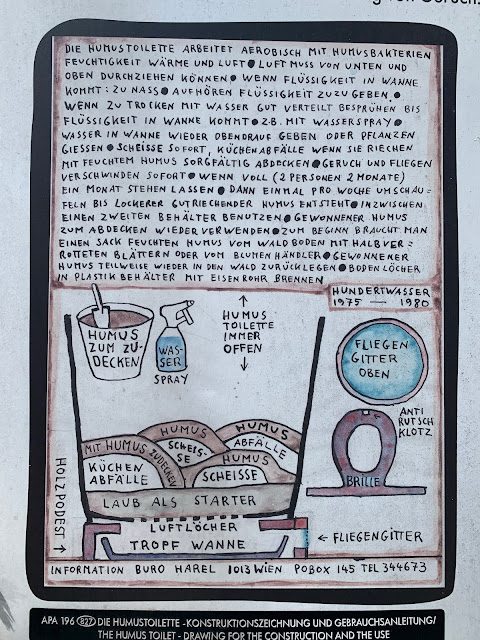 DIE HUMUSTOILETTE ARBEITET AEROBISCH MIT HUMUSBAKTERIEN
FEUCHTIGKEIT WÄRME UND LUFT ● LUFT MUSS VON UNTEN UND
OBEN DURCHZIEHEN KÖNNEN ● WENN FLÜSSIGKEIT IN WANNE
KOMMT: ZU NASS ● AUFHÖREN FLÜSSIGKEIT ZUZUGEBEN ●
WENN ZU TROCKEN MIT WASSER GUT VERTEILT BESPRÜHEN BIS
FLÜSSIGKEIT IN WANNE KOMMT ● Z.B. MIT WASSERSPRAY ●
WASSER IN WANNE WIEDER OBENDRAUF GEBEN ODER PFLANZEN
GIESSEN ● SCHEISSE SOFORT, KÜCHENABFÄLLE WENN SIE RIECHEN
MIT FEUCHTEM HUMUS SORGFÄLTIG ABDECKEN ● GERUCH UND FLIEGEN
VERSCHWINDEN SOFORT ● WENN VOLL (2 PERSONEN 2 MONATE)
EIN MONAT STEHEN LASSEN ● DANN EINMAL PRO WOCHE UMSCHAU=
FELN BIS LOCKERER GUTRIECHENDER HUMUS ENTSTEHT ● INZWISCHEN
EINEN ZWEITEN BEHÄLTER BENUTZEN ● GEWONNENER HUMUS
ZUM ABDECKEN WIEDER VERWENDEN ● ZUM BEGINN BRAUCHT MAN
EINEN SACK FEUCHTEN HUMUS VOM WALDBODEN MIT HALBVER=
ROTTETEN BLÄTTERN ODER VOM BLUMENHÄNDLER ● GEWONNENER
HUMUS TEILWEISE WIEDER IN DEN WALD ZURÜCKLEGEN ● BODENLÖCHER
IN PLASTIK BEHÄLTER MIT EISENROHR BRENNEN
HUNDERTWASSER
1975 — 1980
HUMUS
ZUM ZU-
DECKEN
WAS-
SER
SPRAY
HUMUS
TOILETTE
IMMER
OFFEN
FLIEGEN
GITTER
OBEN
ANTI
RUTSCH
KLOTZ
BRILLE
MIT HUMUS ZUDECKEN
KÜCHEN
ABFÄLLE
HUMUS
SCHEIS-
SE
HUMUS
ABFÄLLE
HUMUS
SCHEISSE
LAUB ALS STARTER
LUFTLÖCHER
TROPF WANNE
HOLZ PODEST →
← FLIEGENGITTER
INFORMATION BURO HAREL 1013 WIEN POBOX 145 TEL 344673
APA 196 827 DIE HUMUSTOILETTE - KONSTRUKTIONSZEICHNUNG UND GEBRAUCHSANLEITUNG/
THE HUMUS TOILET - DRAWING FOR THE CONSTRUCTION AND THE USE